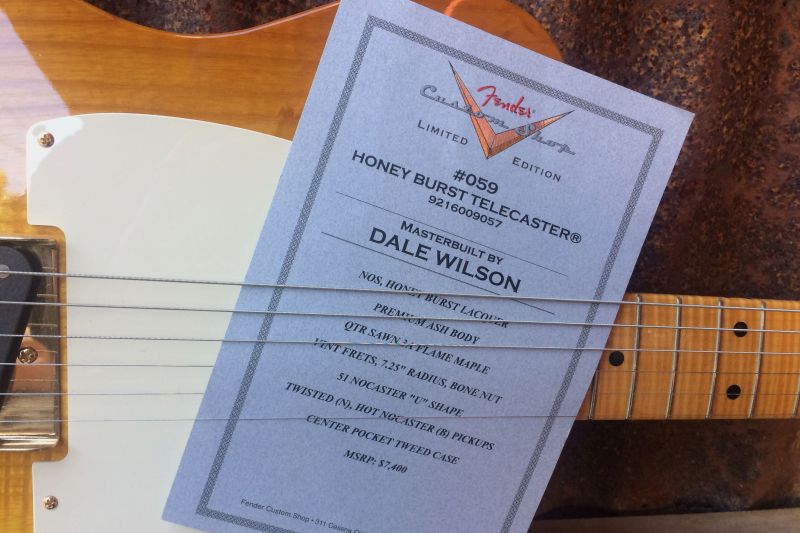 Fender
Custom Shop
LIMITED EDITION
#059
HONEY BURST TELECASTER®
9216009057
MASTERBUILT BY
DALE WILSON
NOS, HONEY BURST LACQUER
PREMIUM ASH BODY
QTR SAWN 3A FLAME MAPLE
VINT FRETS, 7.25" RADIUS, BONE NUT
51 NOCASTER "U" SHAPE
TWISTED (N), HOT NOCASTER (B) PICKUPS
CENTER POCKET TWEED CASE
MSRP: $7,400
Fender Custom Shop • 311 Cessna